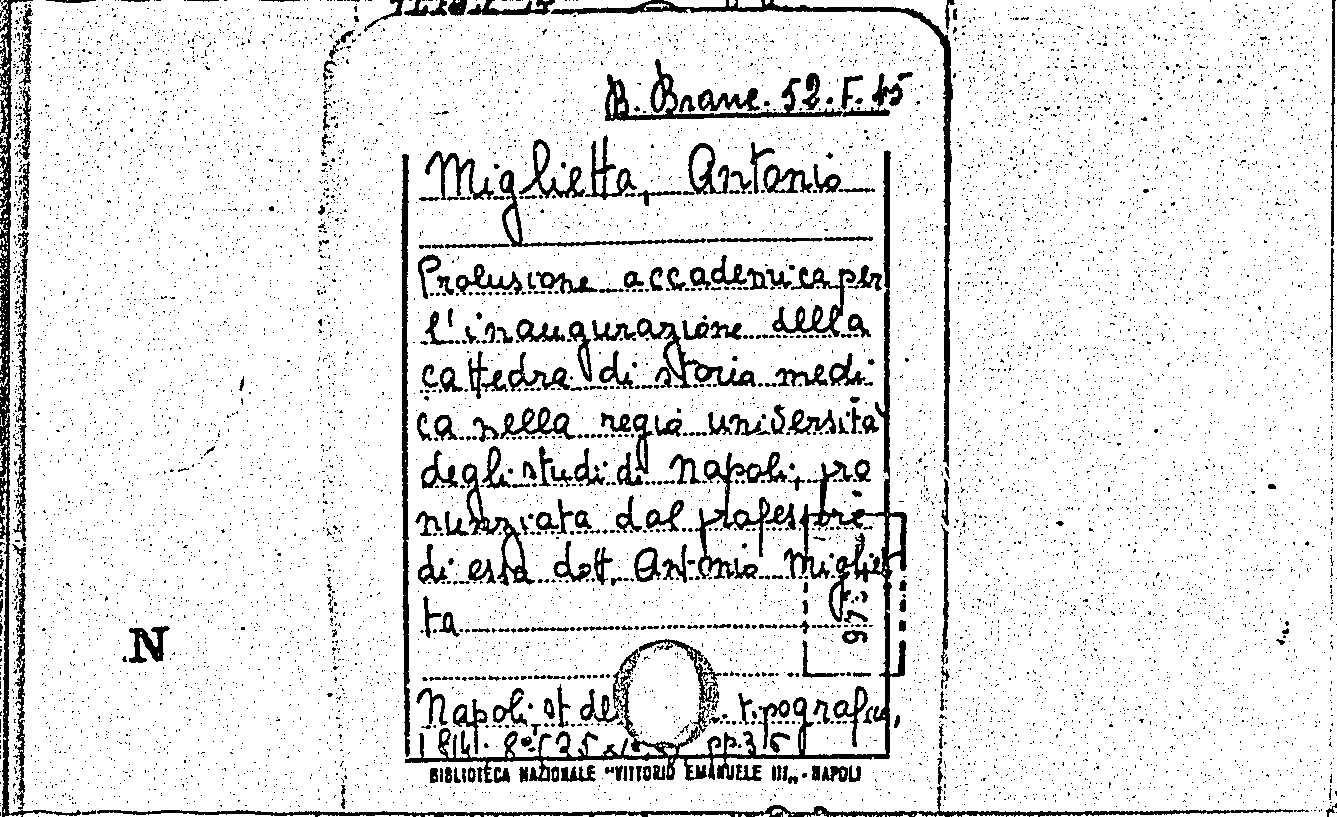 B. Branc. 52. F. 45
Miglietta, Antonio
Prolusione accademica per
l'inaugurazione della
cattedra di storia medi
ca nella regia università
degli studi di Napoli, pro
nunziata dal professore
di essa dott. Antonio Migliet
ta
N
Napoli, st de tipografia,
BIBLIOTECA NAZIONALE "VITTORIO EMANUELE III" - NAPOLI